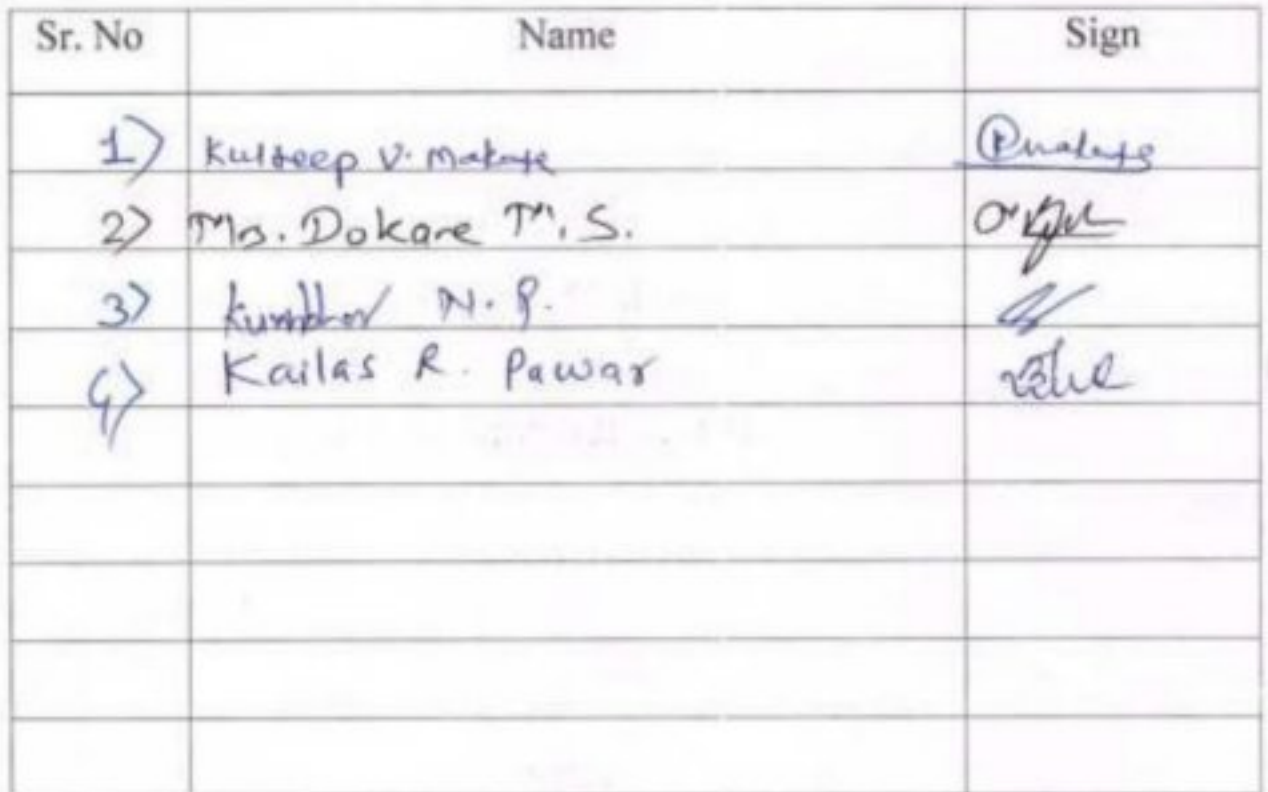 Sr. No Name Sign
1) Kuldeep V. Makate
2) Mrs. Dokare M. S.
3) Kumbhar N. P.
4) Kailas R. Pawar